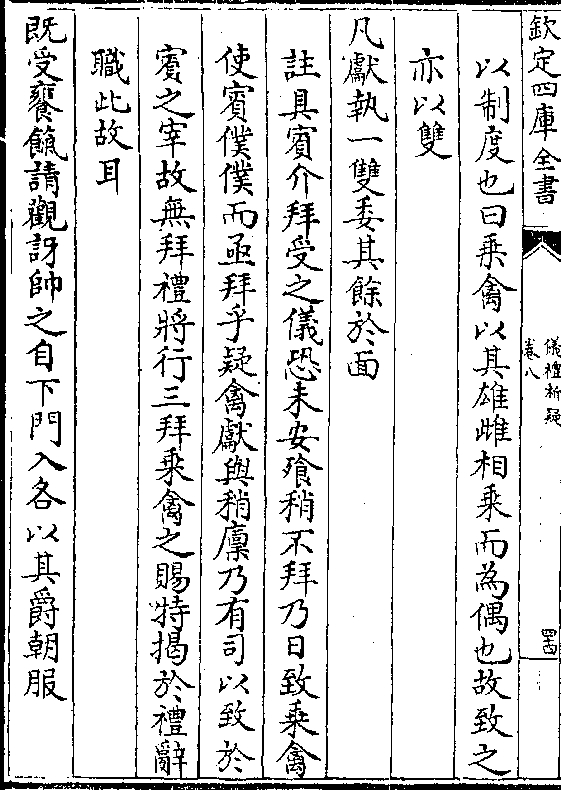 欽定四庫全書
儀禮析疑
卷八
四
以制度也曰乘禽以其雄雌相乘而為偶也故致之
亦以雙
凡獻執一雙委其餘於面
註具賓介拜受之儀恐未安飱稍不拜乃日致乘禽
使賓僕僕而亟拜乎疑禽獻與稍廩乃有司以致於
賓之宰故無拜禮將行三拜乘禽之賜特揭於禮辭
職此故耳
既受饔餼請觀訝帥之自下門入各以其爵朝服